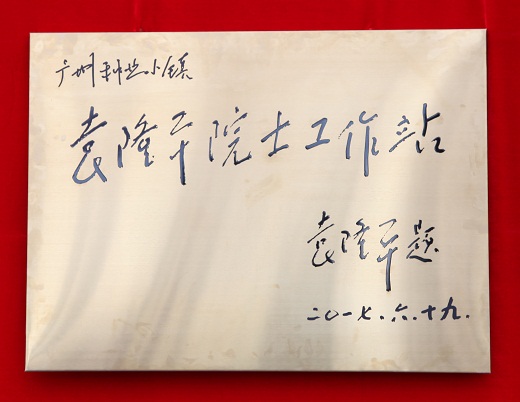 广州种业小镇
袁隆平院士工作站
袁隆平题
二〇一七.六.十九.